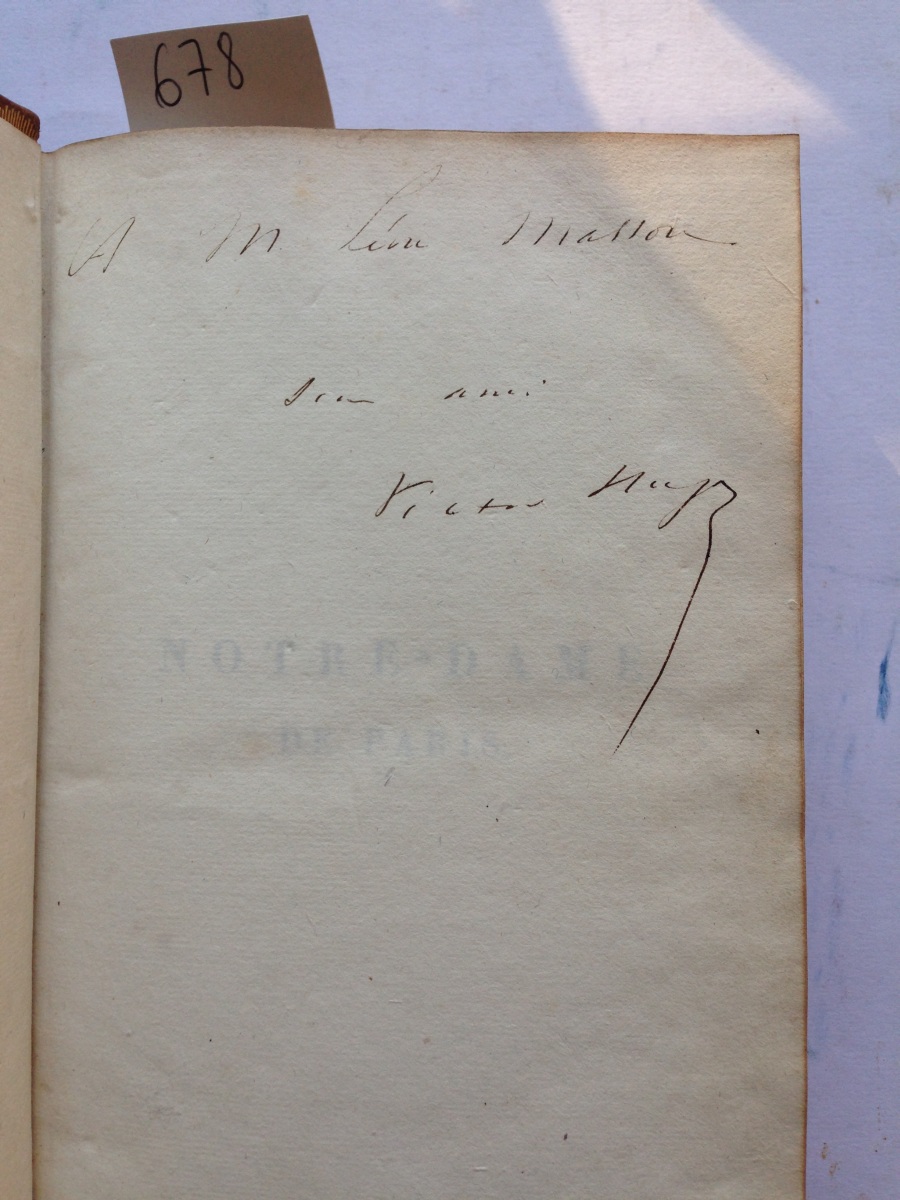 678
A M. Léon Masson
son ami
Victor Hugo
NOTRE-DAME
DE PARIS